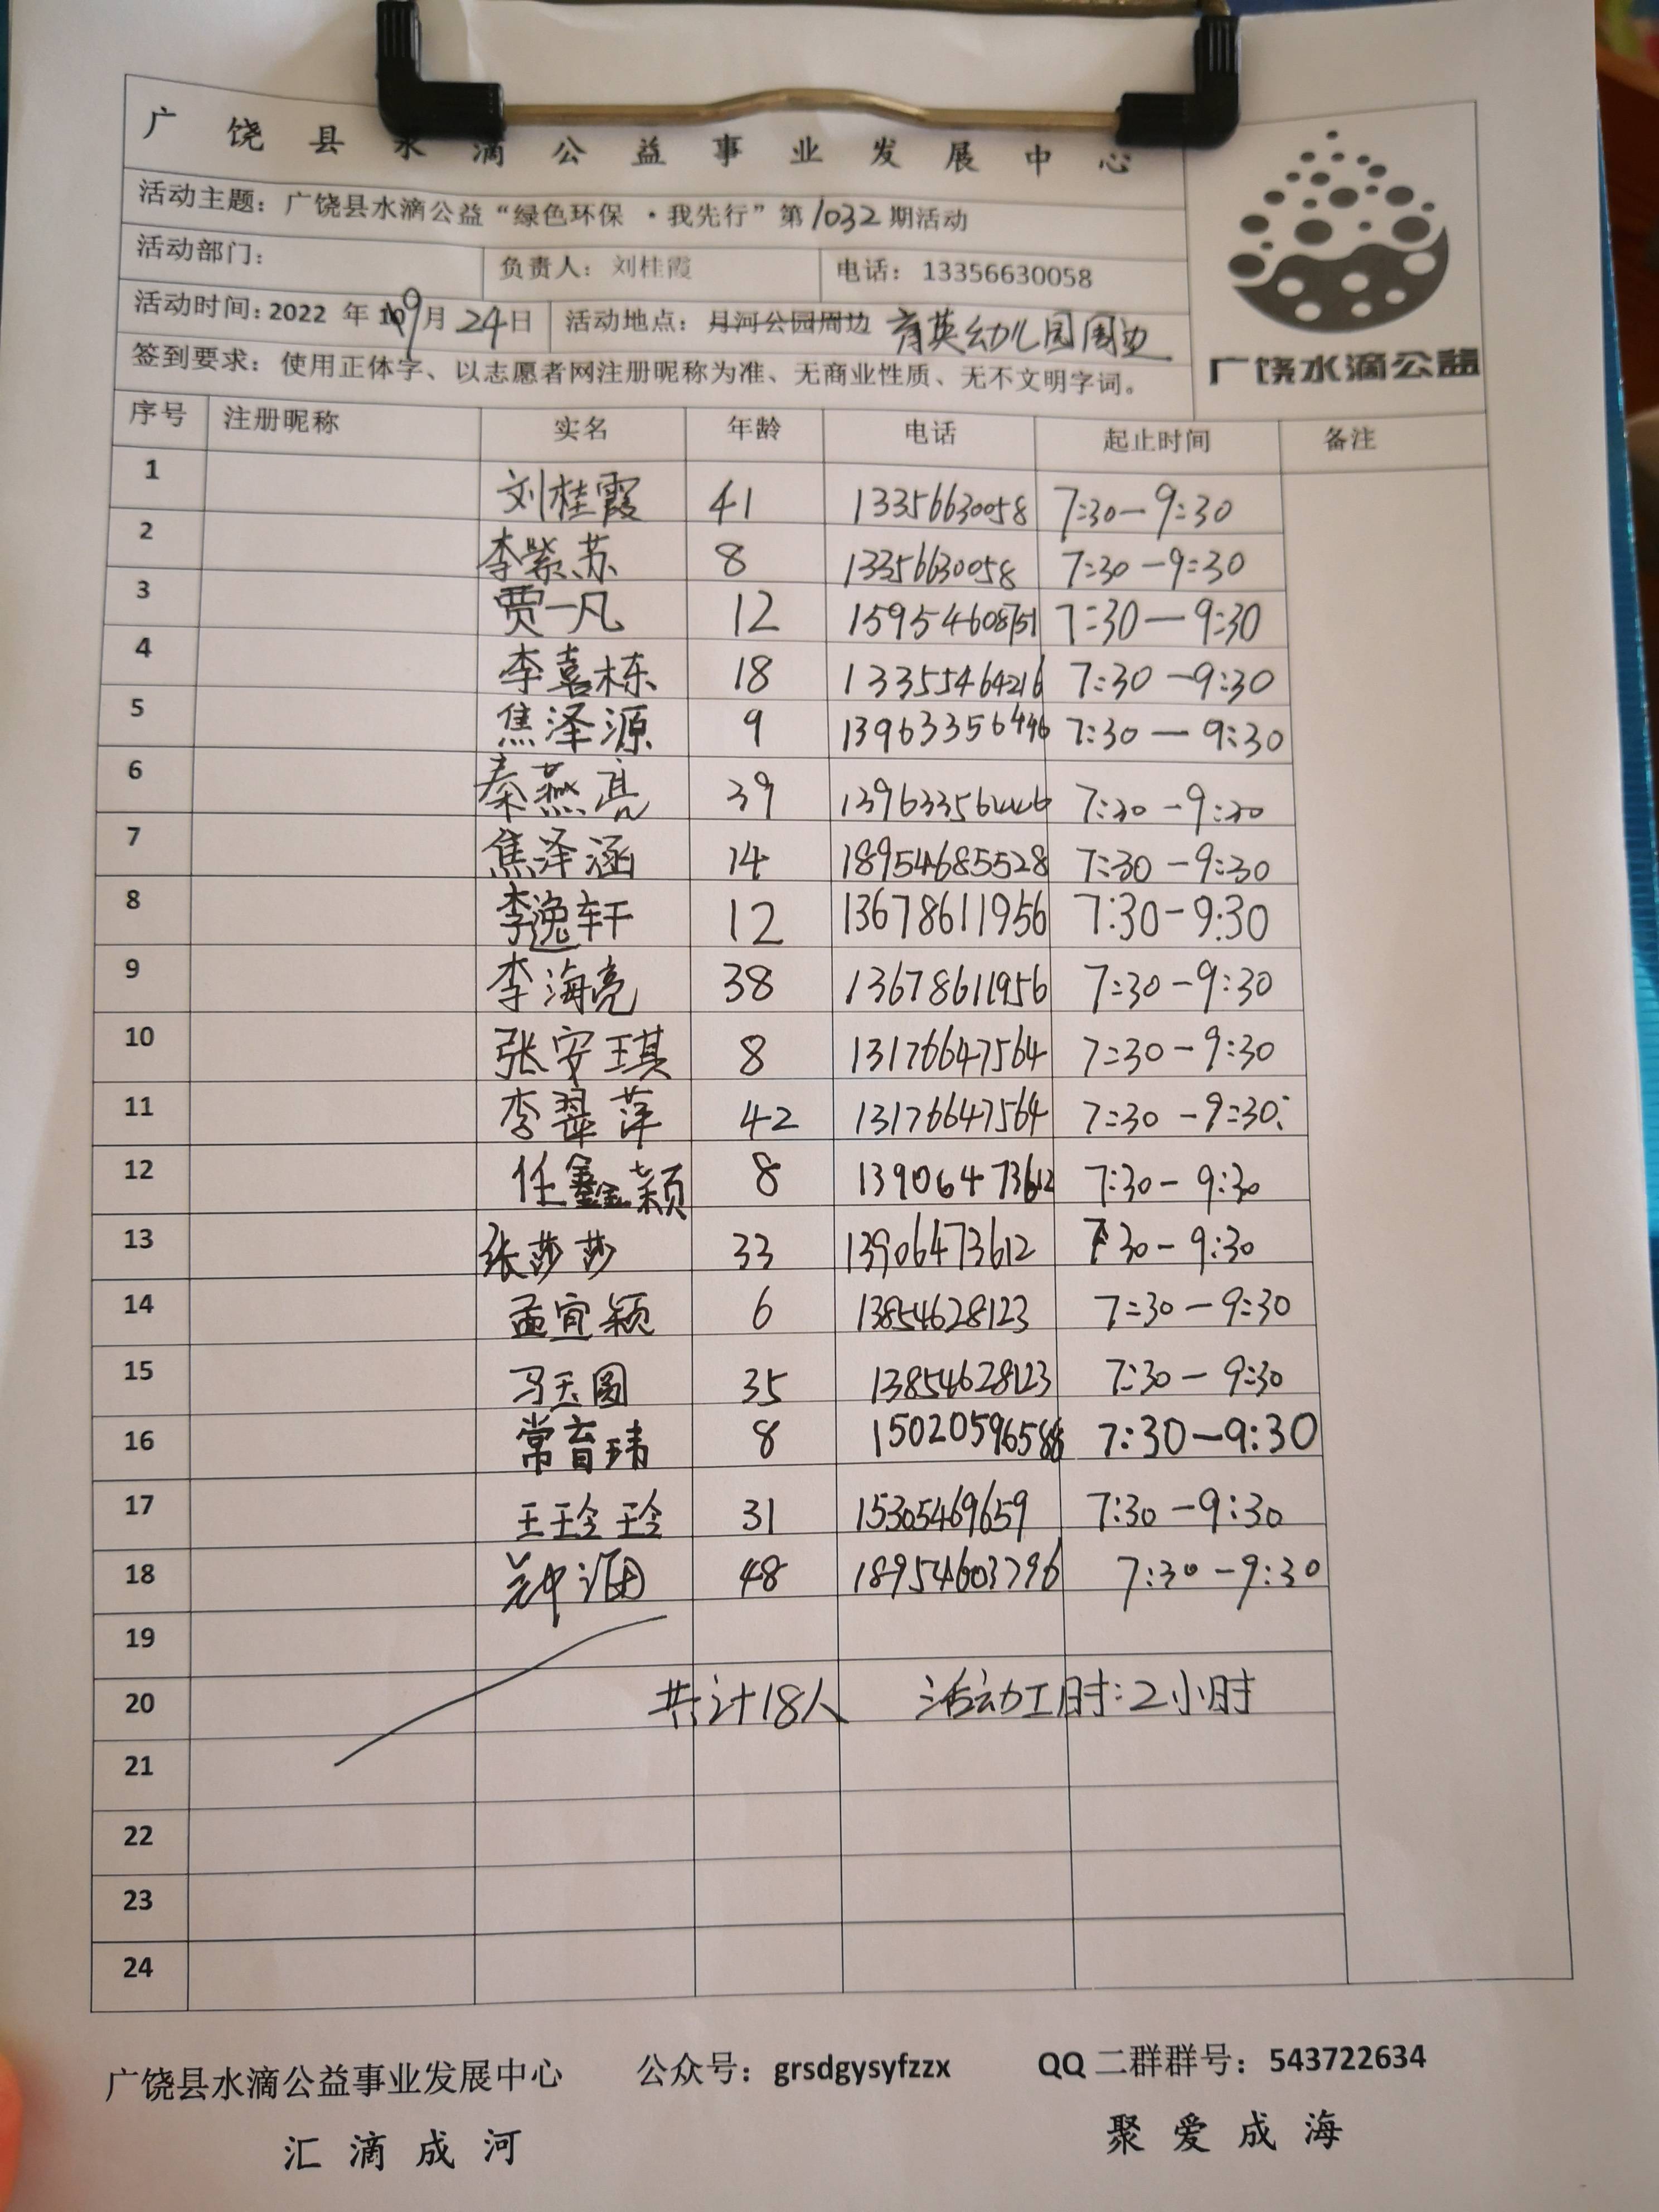 广饶县水滴公益事业发展中心
活动主题：广饶县水滴公益“绿色环保 ·我先行”第1032期活动
活动部门： 负责人：刘桂霞 电话：13356630058
活动时间：2022 年 9月 24日 活动地点：月河公园周边 育英幼儿园周边
签到要求：使用正体字、以志愿者网注册昵称为准、无商业性质、无不文明字词。
广饶水滴公益
序号 注册昵称 实名 年龄 电话 起止时间 备注
1 刘桂霞 41 13356630058 7:30-9:30
2 李紫苏 8 13356630058 7:30-9:30
3 贾一凡 12 15954608751 7:30-9:30
4 李嘉栋 18 13355464216 7:30-9:30
5 焦泽源 9 13963356446 7:30-9:30
6 秦燕亮 39 13963356446 7:30-9:30
7 焦泽涵 14 18954685528 7:30-9:30
8 李逸轩 12 13678611956 7:30-9:30
9 李海亮 38 13678611956 7:30-9:30
10 张安琪 8 13176647564 7:30-9:30
11 李翠萍 42 13176647564 7:30-9:30
12 任鑫颖 8 13906473612 7:30-9:30
13 张莎莎 33 13906473612 7:30-9:30
14 孟宜颖 6 13854628123 7:30-9:30
15 马玉圆 35 13854628123 7:30-9:30
16 常育玮 8 7:30-9:30
17 王玲玲 31 15305469659 7:30-9:30
18 48 18954603796 7:30-9:30
19
20 共计18人 活动工时:2小时
21
22
23
24
广饶县水滴公益事业发展中心 公众号：grsdgysyfzzx QQ 二群群号：543722634
汇滴成河 聚爱成海